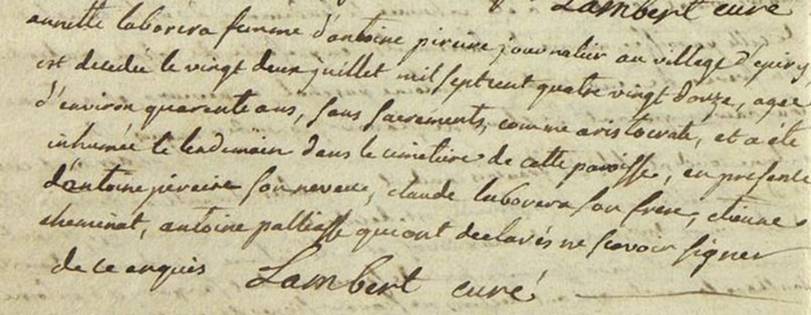 Lambert curé
annette laborera femme d'antoine pireire journalier au village d'epiry
est decedée le vingt deux juillet mil sept cent quatre vingt douze, agee
d'environ quarente ans, sans sacrements, comme aristocrate, et a été
inhumée le lendemain dans le cimetiere de cette paroisse, en presence
d'antoine pireire son neveu, claude laborera son frere, etienne
cheminat, antoine palliasse qui ont declarés ne scavoir signer
de ce enquis Lambert curé